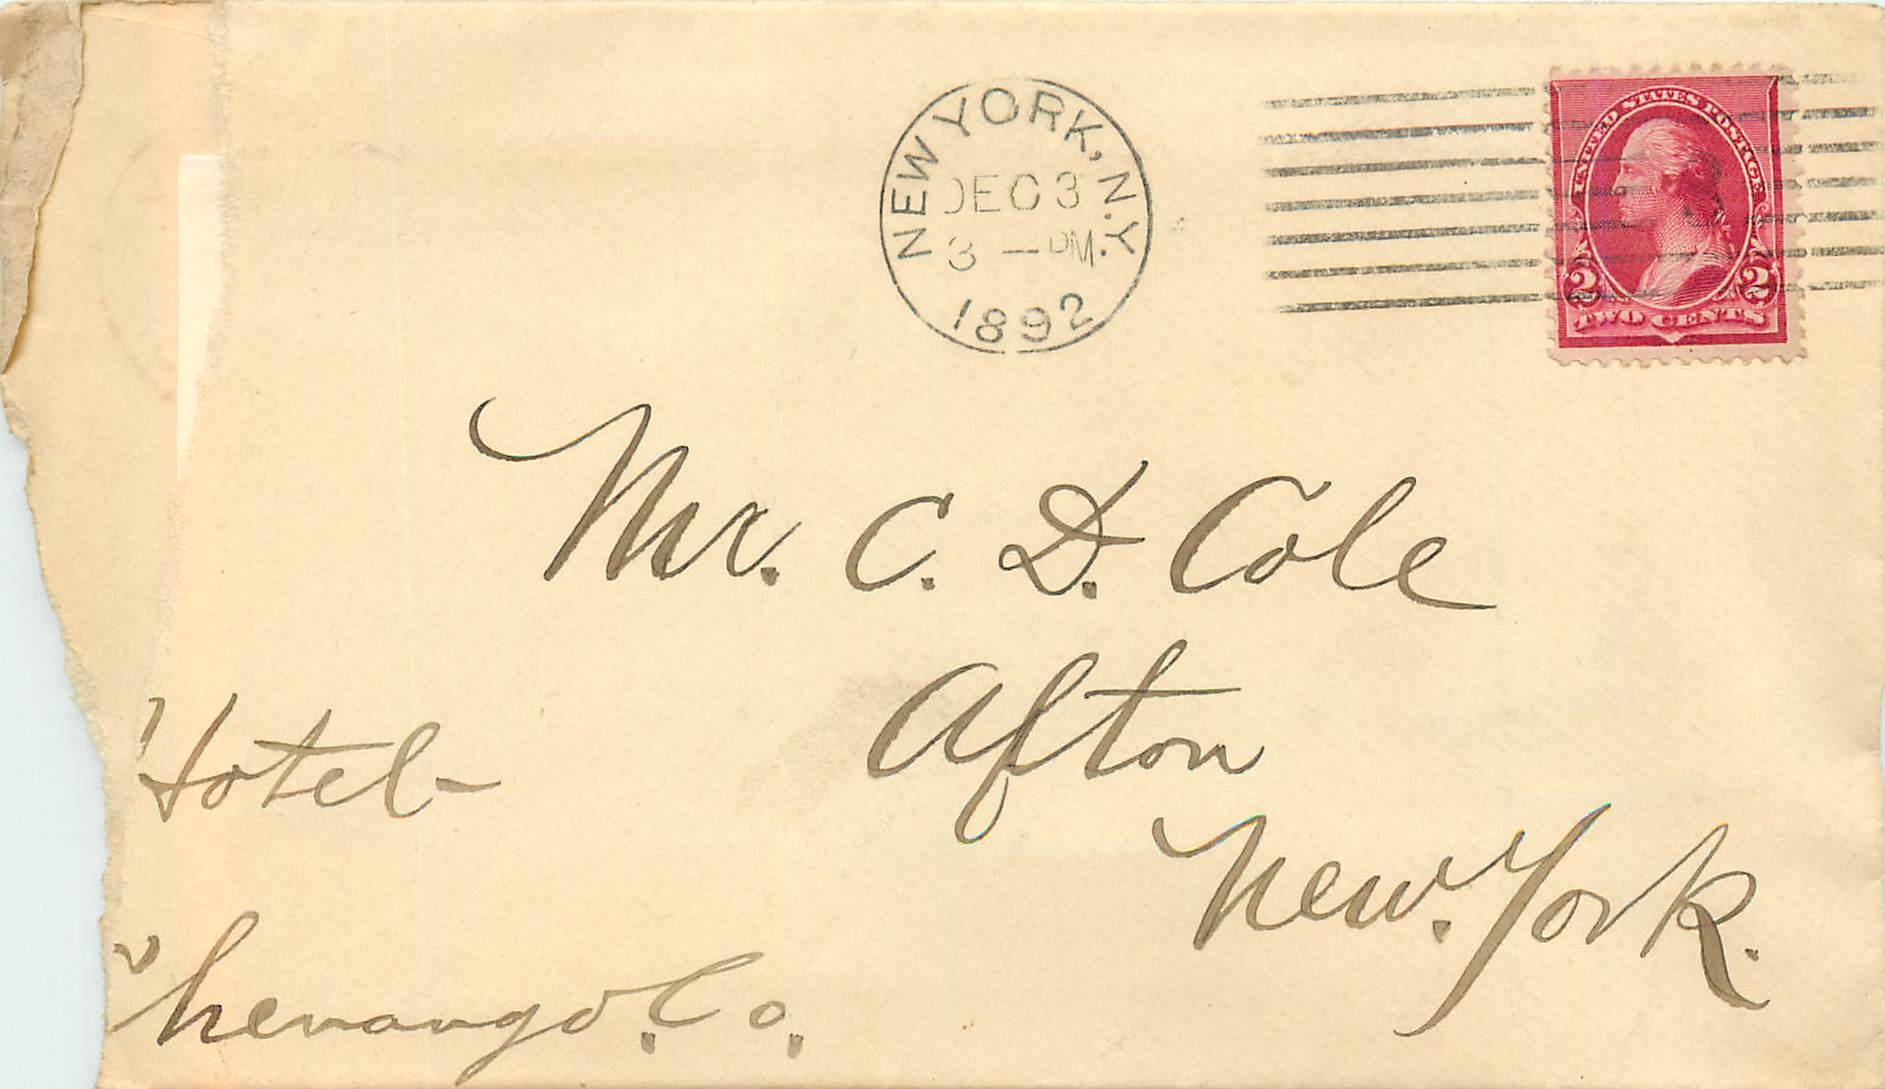 NEW YORK, N.Y.
DEC 3
3 — PM.
1892
UNITED STATES POSTAGE
2 2
TWO CENTS
Mr. C. D. Cole
Afton
New. York.
Hotel-
Chenango. Co.